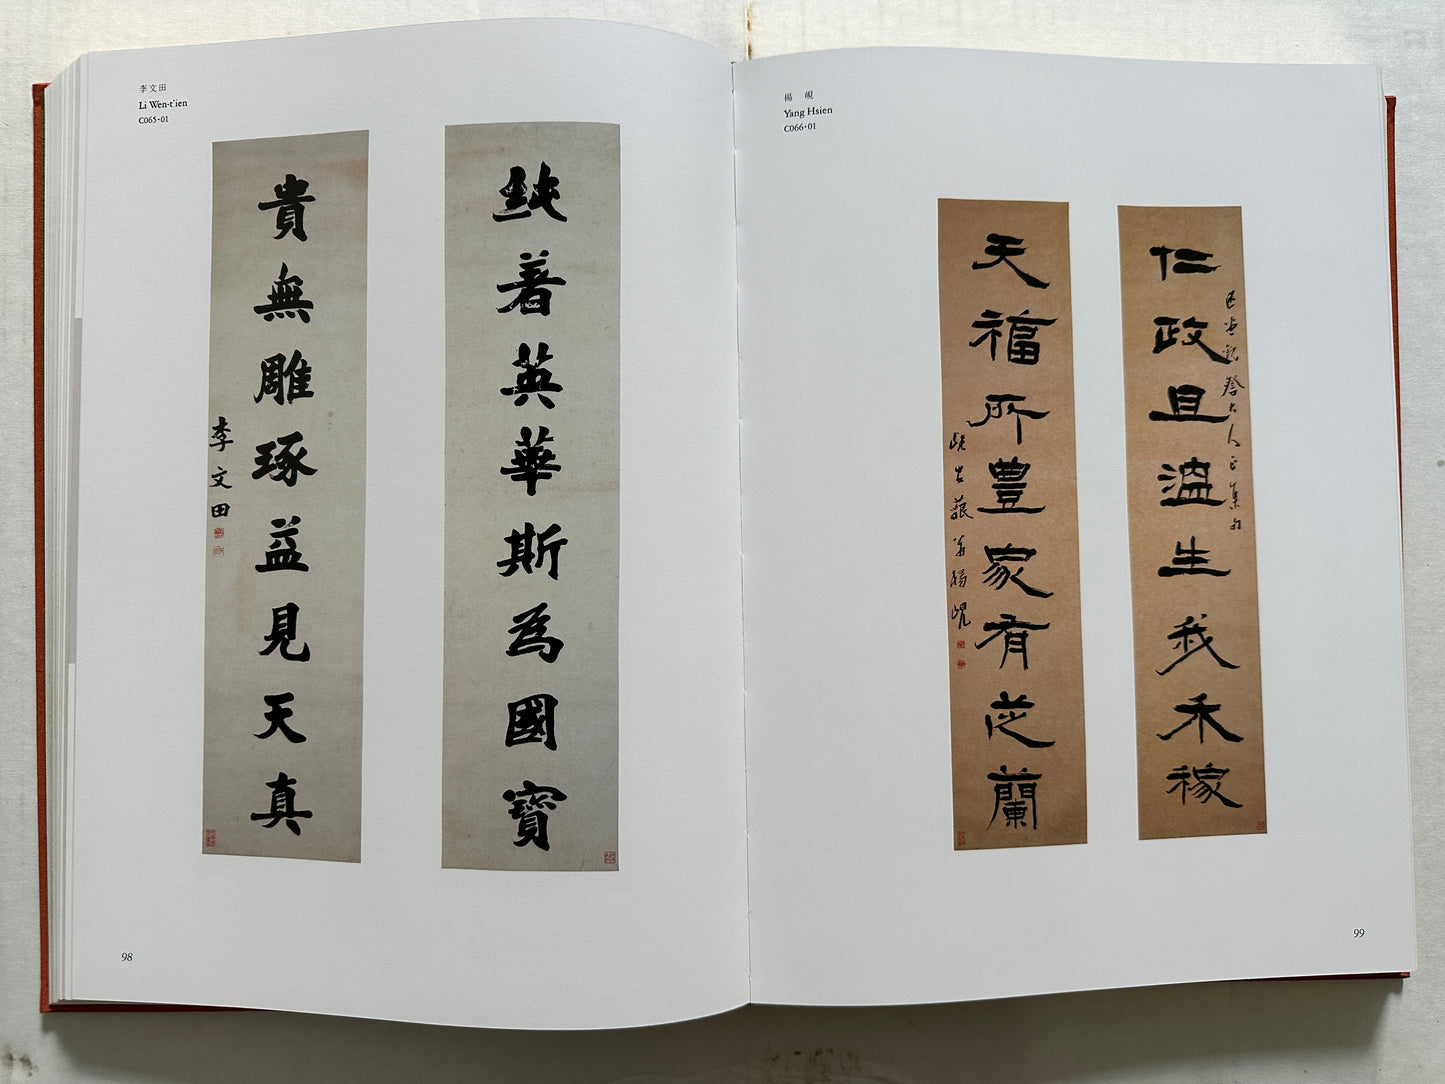 李文田
Li Wen-t'ien
C065•01
純著英華斯為國寶
貴無雕琢益見天真
李文田
98
楊 峴
Yang Hsien
C066•01
仁政且溫生我禾稼
大人正集句
天福所豐家有芝蘭
藐翁楊峴
99